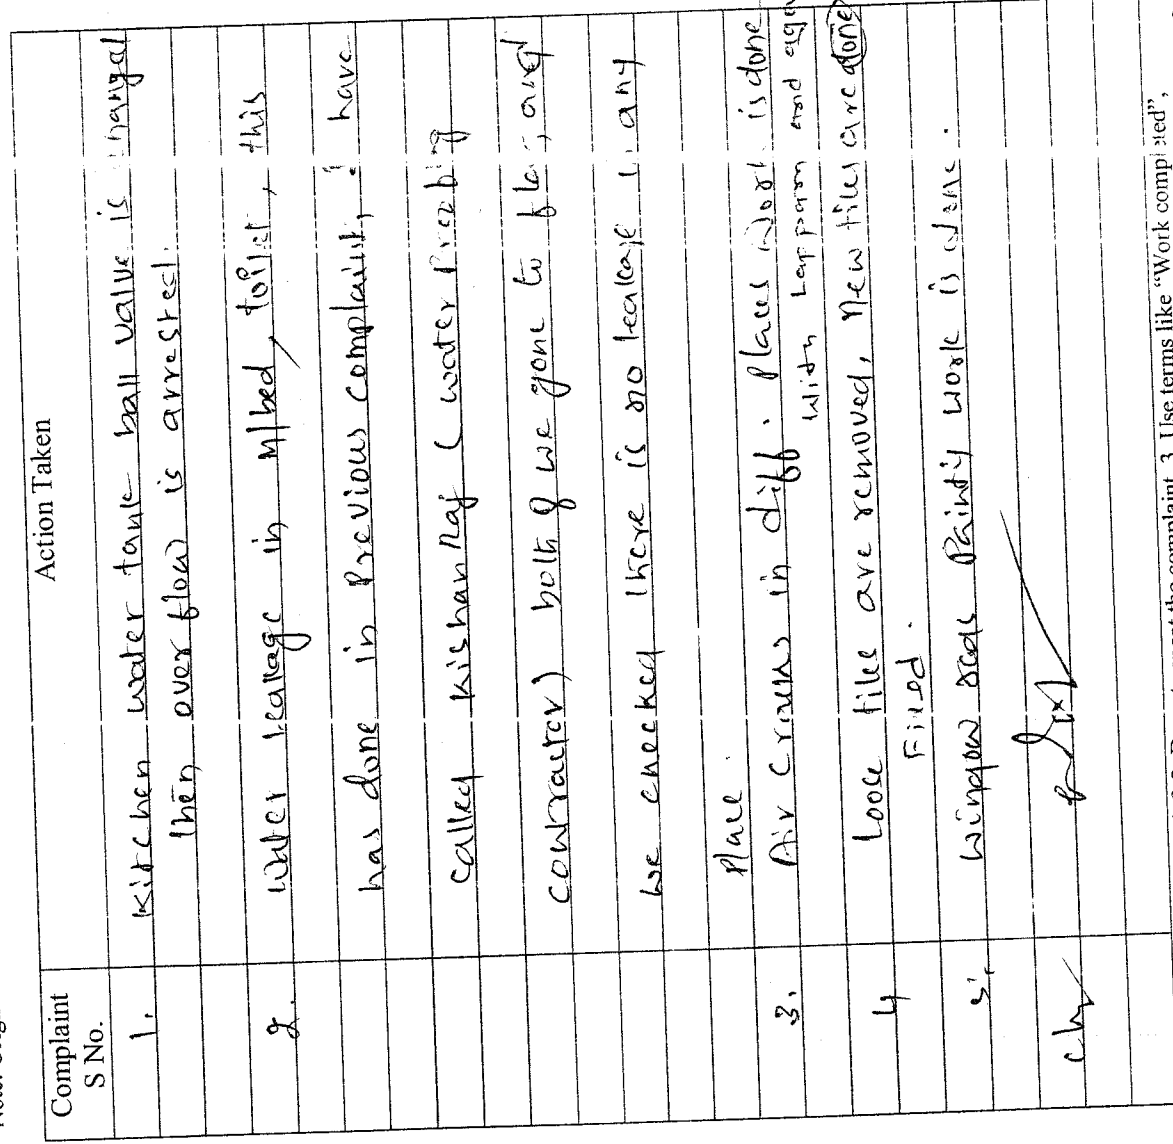 Complaint
S No.
Action Taken
1. Kitchen water tank ball valve is changed
then over flow is arrested.
2. Water leakage in M/bed, toilet, this
has done in Previous complaint, I have
called Kishan Raj ( water
contractor) both of we gone to flat, and
we checked there is no leakage in any
Place.
3. Air cracks in diff. Places work is done
with and
4 Loose tiles are removed, New tiles are done
Fixed.
5. window Painting work is done.
the complaint. 3. Use terms like “Work completed”,